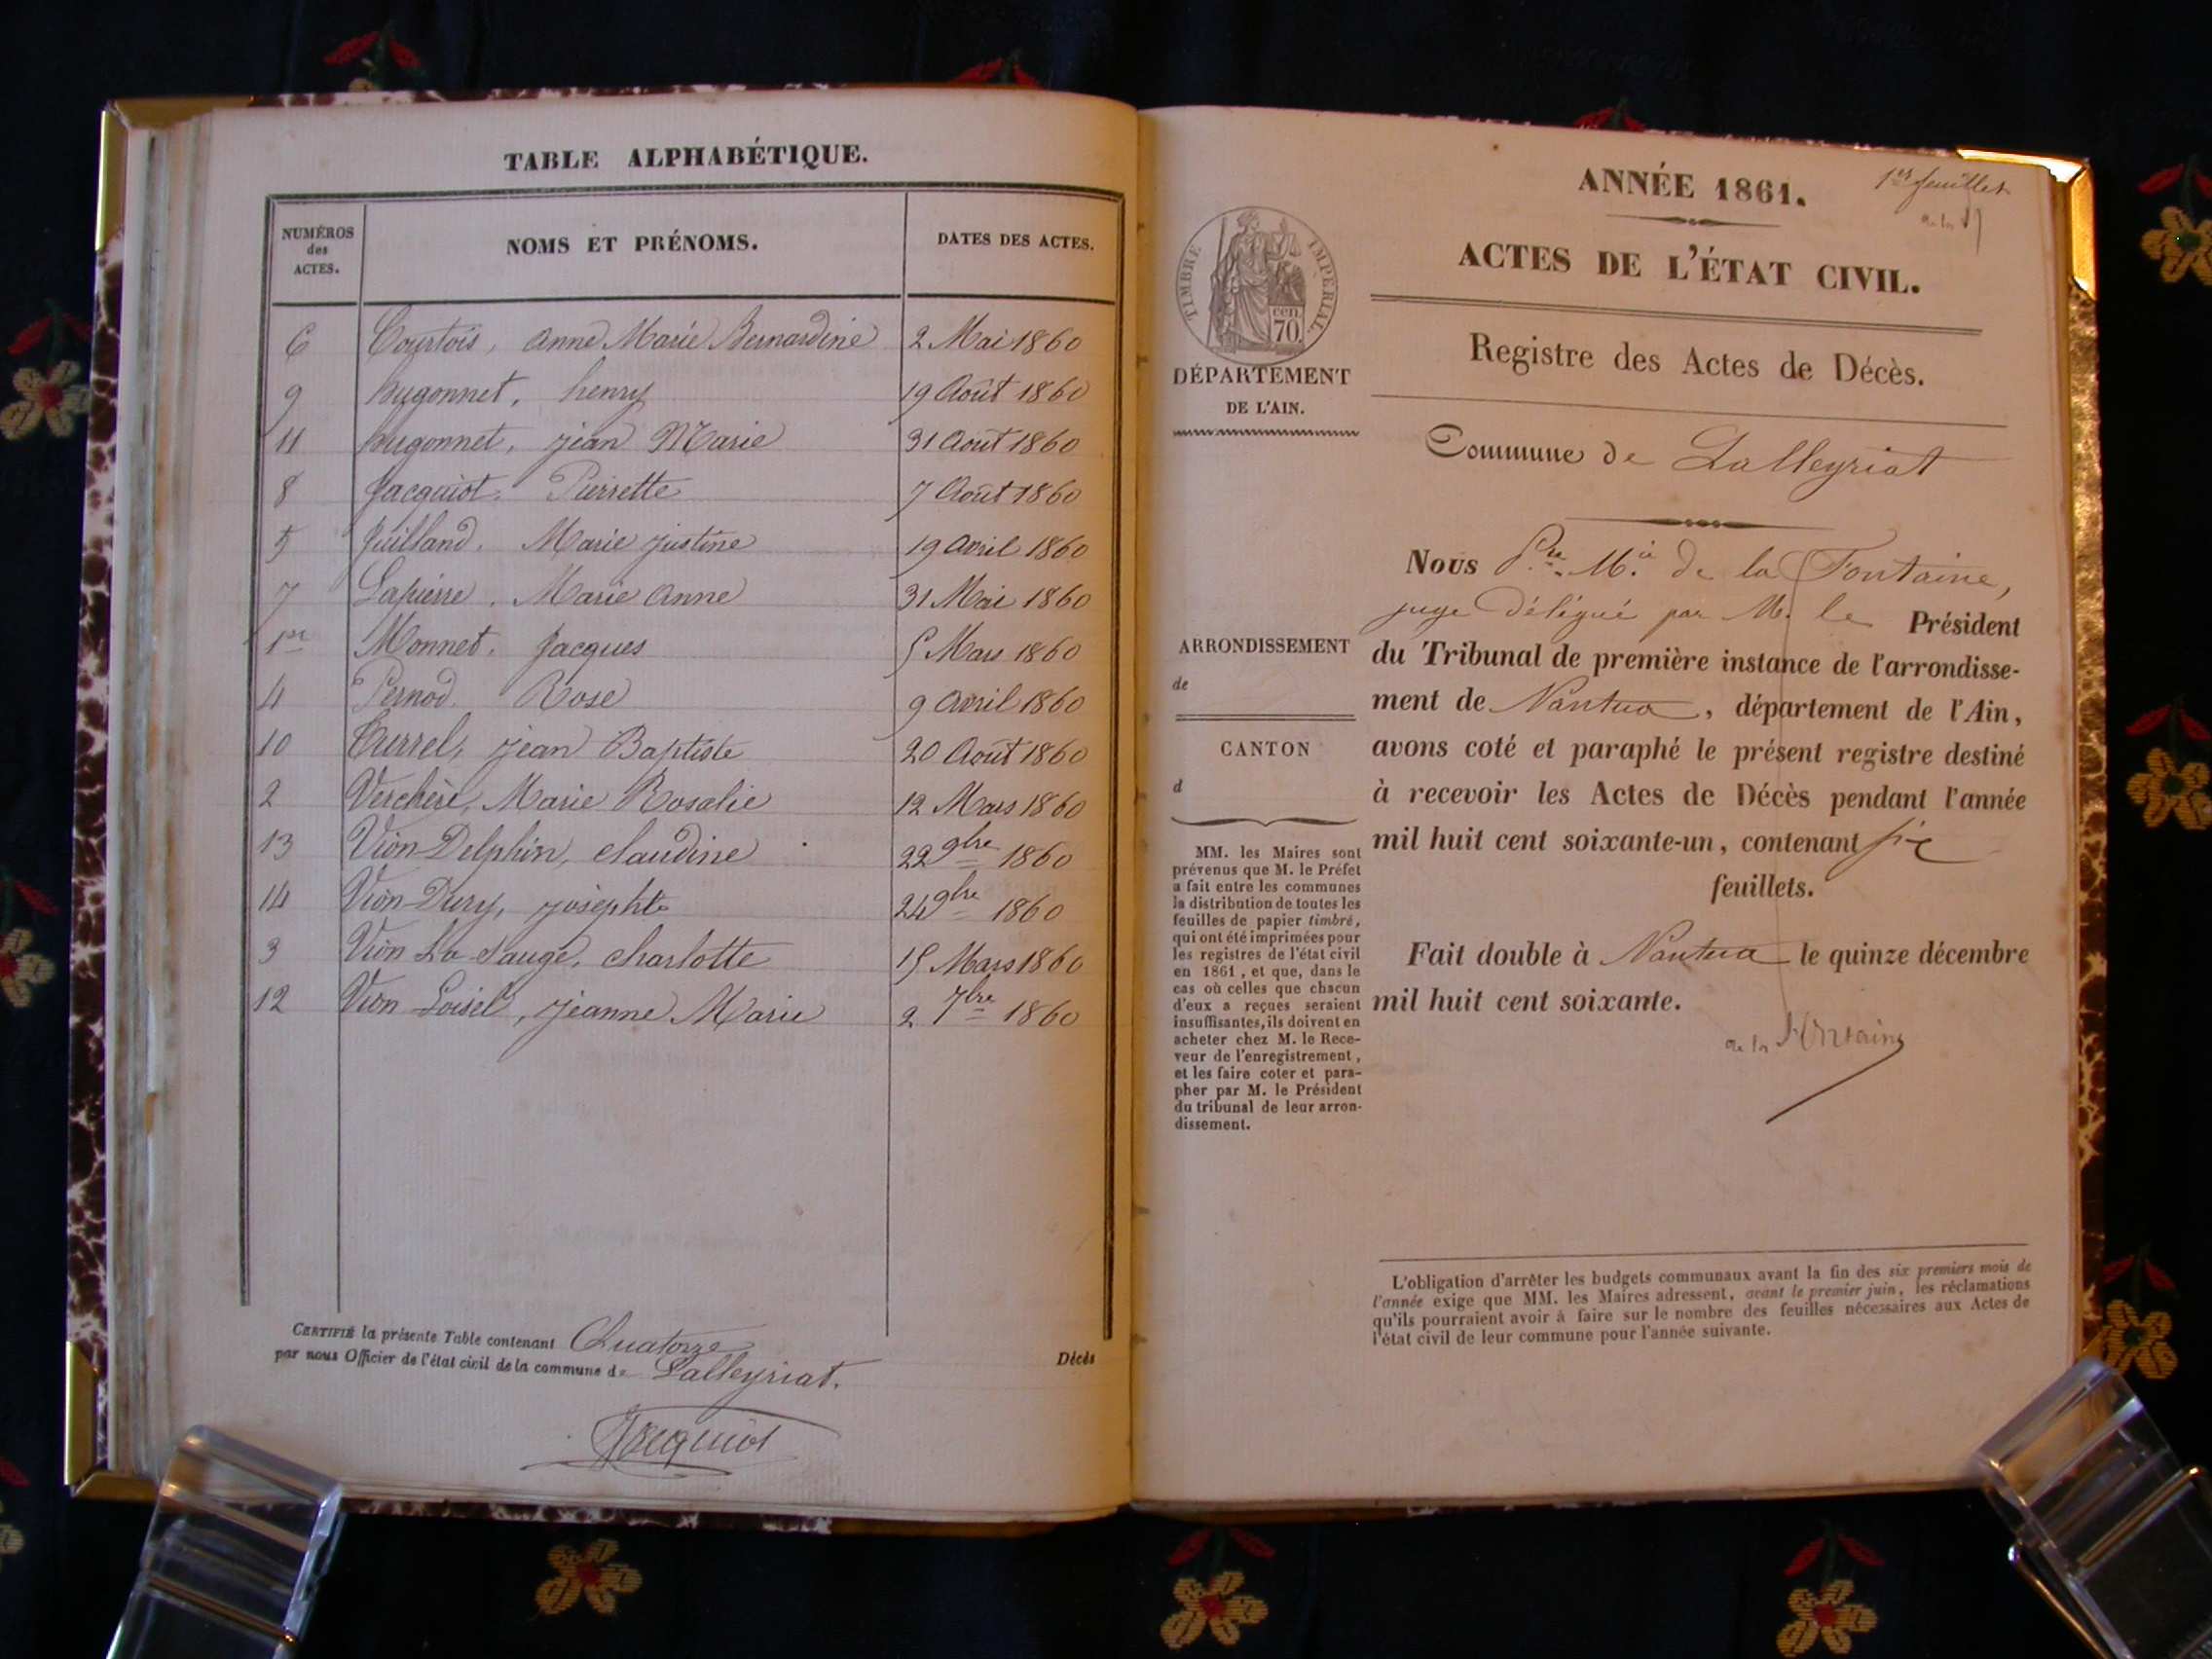 TABLE ALPHABÉTIQUE.
NUMÉROS des ACTES. NOMS ET PRÉNOMS. DATES DES ACTES.
6 Courtois, Anne Marie Bernardine 2 Mai 1860
9 hugonnet, henry 19 Août 1860
11 hugonnet, jean Marie 31 Août 1860
8 Jacquiot, Pierrette 7 Août 1860
5 Juilland, Marie justine 19 Avril 1860
7 Lapierre, Marie Anne 31 Mai 1860
1er Monnet, Jacques 5 Mars 1860
4 Pernod, Rose 9 Avril 1860
10 Turrel, jean Baptiste 20 Août 1860
2 Verchère, Marie Rosalie 12 Mars 1860
13 Vion Delphin, claudine 22 9bre 1860
14 Vion Dury, josephte 24 9bre 1860
3 Vion La Sauge, charlotte 15 Mars 1860
12 Vion Loisel, jeanne Marie 2 7bre 1860
CERTIFIÉ la présente Table contenant Quatorze Décès
par nous Officier de l'état civil de la commune de Lalleyriat.
Jacquiot
1er feuillet
de la
ANNÉE 1861.
ACTES DE L'ÉTAT CIVIL.
Registre des Actes de Décès.
Commune de Lalleyriat
TIMBRE IMPÉRIAL.
cen.
70.
DÉPARTEMENT
DE L'AIN.
ARRONDISSEMENT
de
CANTON
d
MM. les Maires sont
prévenus que M. le Préfet
a fait entre les communes
la distribution de toutes les
feuilles de papier timbré,
qui ont été imprimées pour
les registres de l'état civil
en 1861, et que, dans le
cas où celles que chacun
d'eux a reçues seraient
insuffisantes, ils doivent en
acheter chez M. le Rece-
veur de l'enregistrement,
et les faire coter et para-
pher par M. le Président
du tribunal de leur arron-
dissement.
Nous Pre. Mie de la Fontaine,
juge délégué par M. le Président
du Tribunal de première instance de l'arrondisse-
ment de Nantua, département de l'Ain,
avons coté et paraphé le présent registre destiné
à recevoir les Actes de Décès pendant l'année
mil huit cent soixante-un, contenant six
feuillets.
Fait double à Nantua le quinze décembre
mil huit cent soixante.
de la Fontaine
L'obligation d'arrêter les budgets communaux avant la fin des six premiers mois de
l'année exige que MM. les Maires adressent, avant le premier juin, les réclamations
qu'ils pourraient avoir à faire sur le nombre des feuilles nécessaires aux Actes de
l'état civil de leur commune pour l'année suivante.